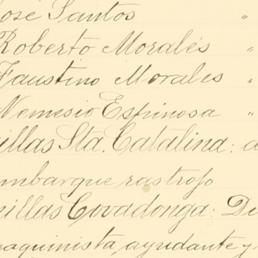 José Santos "
Roberto Morales "
Faustino Morales "
Nemesio Espinosa "
illas Sta. Catalina: d
mbarque rastrojo
illas Covadonga: De
aquinista, ayudante y